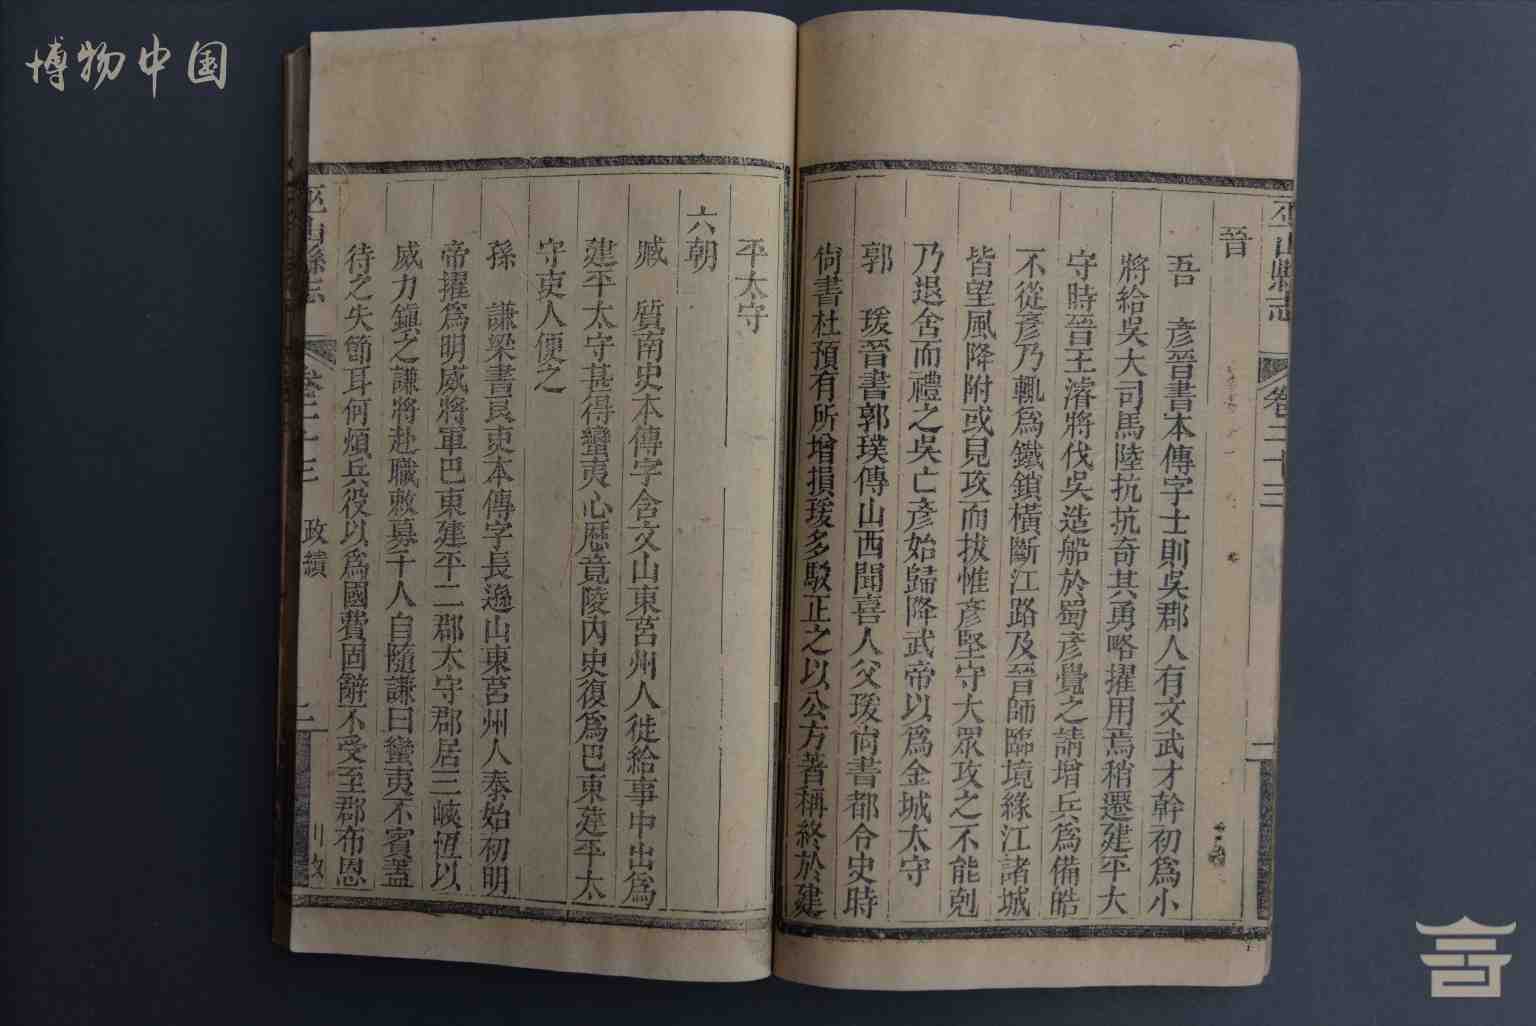 博物中国
巫山縣志
卷二十三
一
晉
吾 彥晉書本傳字士則吳郡人有文武才幹初爲小
將給吳大司馬陸抗抗奇其勇略擢用焉稍遷建平大
守時晉王濬將伐吳造船於蜀彥覺之請增兵爲備皓
不從彥乃輒爲鐵鎖橫斷江路及晉師臨境緣江諸城
皆望風降附或見攻而拔惟彥堅守大眾攻之不能剋
乃退舍而禮之吳亡彥始歸降武帝以爲金城太守
郭 瑗晉書郭璞傳山西聞喜人父瑗尙書都令史時
尙書杜預有所增損瑗多駮正之以公方著稱終於建
平太守
六朝
臧 質南史本傳字含文山東莒州人徙給事中出爲
建平太守甚得蠻夷心厯竟陵內史復爲巴東建平太
守吏人便之
孫 謙梁書良吏本傳字長遜山東莒州人泰始初明
帝擢爲明威將軍巴東建平二郡太守郡居三峽恆以
威力鎮之謙將赴職敕募千人自隨謙曰蠻夷不賓蓋
待之失節耳何煩兵役以爲國費固辭不受至郡布恩
巫山縣志
卷二十三
政績
二